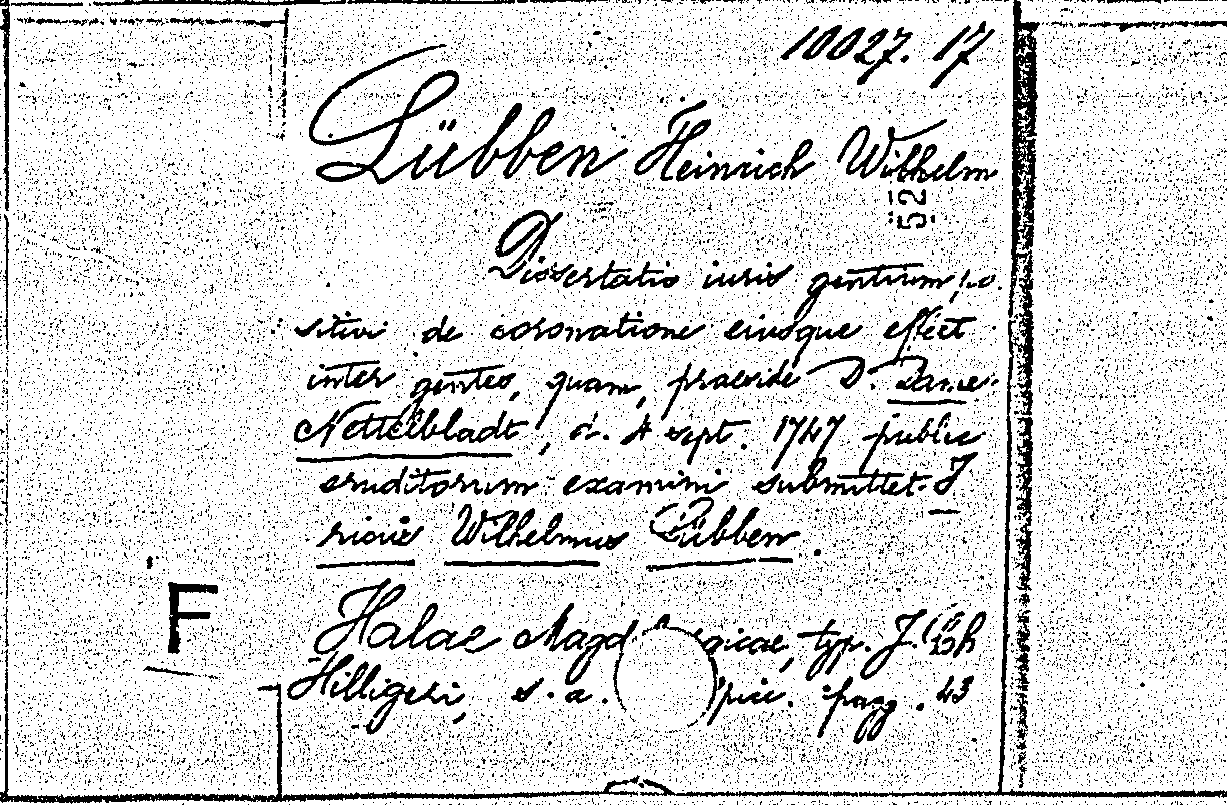 10027. 17
Lübben Heinrich Wilhelm
52
Dissertatio iuris gentium po
sitivi de coronatione eiusque effect
inter gentes, quam, praeside D.
Nettelbladt, d. 4 sept. 1747 public
eruditorum examini submittet
Wilhelmus Lübben.
F
Halae Magd gicae, typ. J.
Hilligeri, s. a. pagg. 43